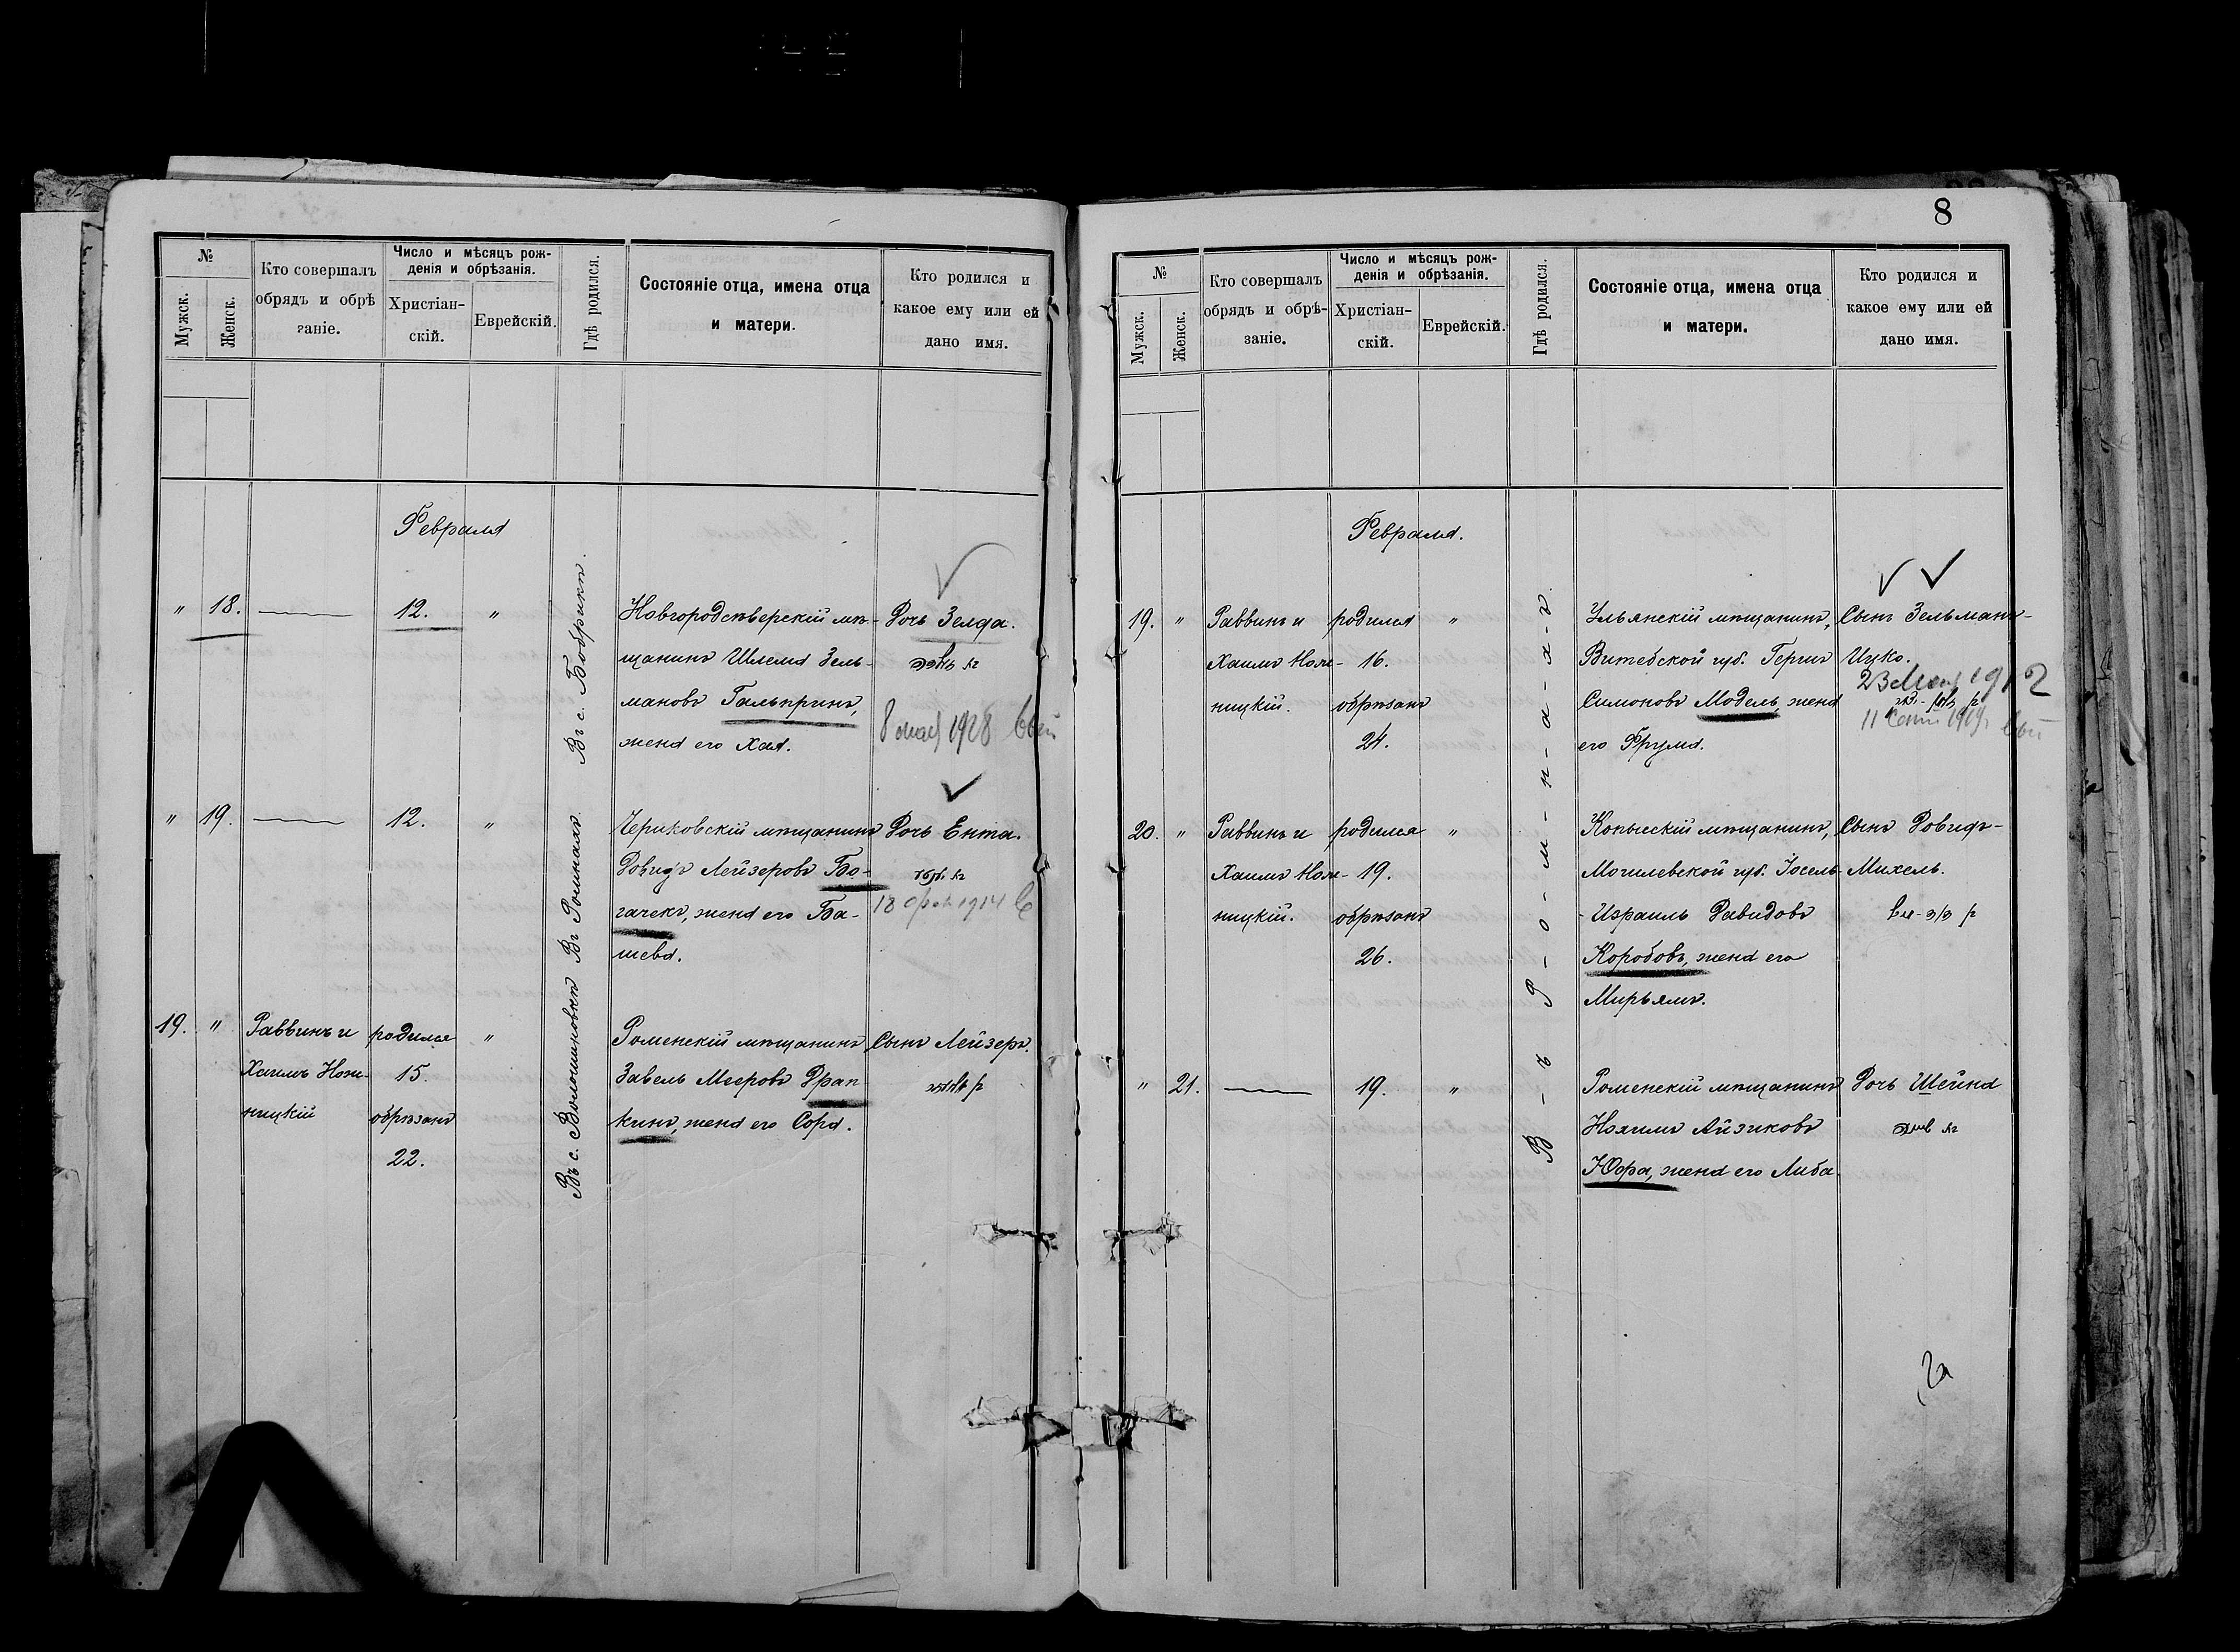 8
№
Мужск.
Женск.
Кто совершалъ
обрядъ и обрѣ
заніе.
Число и мѣсяцъ рож-
денія и обрѣзанія.
Христіан-
скій.
Еврейскій.
Гдѣ родился.
Состояніе отца, имена отца
и матери.
Кто родился и
какое ему или ей
дано имя.
Февраля
" 18. — 12. "
Въ с. Бобрикѣ.
Новгородсѣверскій мѣ-
щанинъ Шлема Зель-
мановъ Гальпринъ,
жена его Хая.
Дочь Зелда.
8 мая 1928
" 19. — 12. "
Въ Ромнахъ.
Чериковскій мѣщанинъ
Довидъ Лейзеровъ Бо-
гачекъ, жена его Ба-
шева.
Дочь Ента.
18 1914
19. "
Раввинъ и
Хаимъ Нож-
ницкій
родился
15.
обрѣзанъ
22.
"
Въ с. Волошиновкѣ
Роменскій мѣщанинъ
Завель Мееровъ Драп-
кинъ, жена его Сора.
Сынъ Лейзеръ.
№
Мужск.
Женск.
Кто совершалъ
обрядъ и обрѣ-
заніе.
Число и мѣсяцъ рож-
денія и обрѣзанія.
Христіан-
скій.
Еврейскій.
Гдѣ родился.
Состояніе отца, имена отца
и матери.
Кто родился и
какое ему или ей
дано имя.
Февраля.
19. "
Раввинъ и
Хаимъ Нож-
ницкій.
родился
16.
обрѣзанъ
24.
"
В-ъ Р-о-м-н-а-х-ъ.
Ульянскій мѣщанинъ,
Витебской губ. Гершъ
Симоновъ Модель, жена
его Фрума.
Сынъ Зельманъ-
Ицко.
23 1912
11 1919
20. "
Раввинъ и
Хаимъ Нож-
ницкій.
родился
19.
обрѣзанъ
26.
"
Копысскій мѣщанинъ,
Могилевской губ. Іосель-
-Израиль Давидовъ
Коробовъ, жена его
Мирьямъ.
Сынъ Довидъ-
Михель.
" 21. — 19. "
Роменскій мѣщанинъ
Нохимъ Айзиковъ
Юфа, жена его Либа.
Дочь Шейна